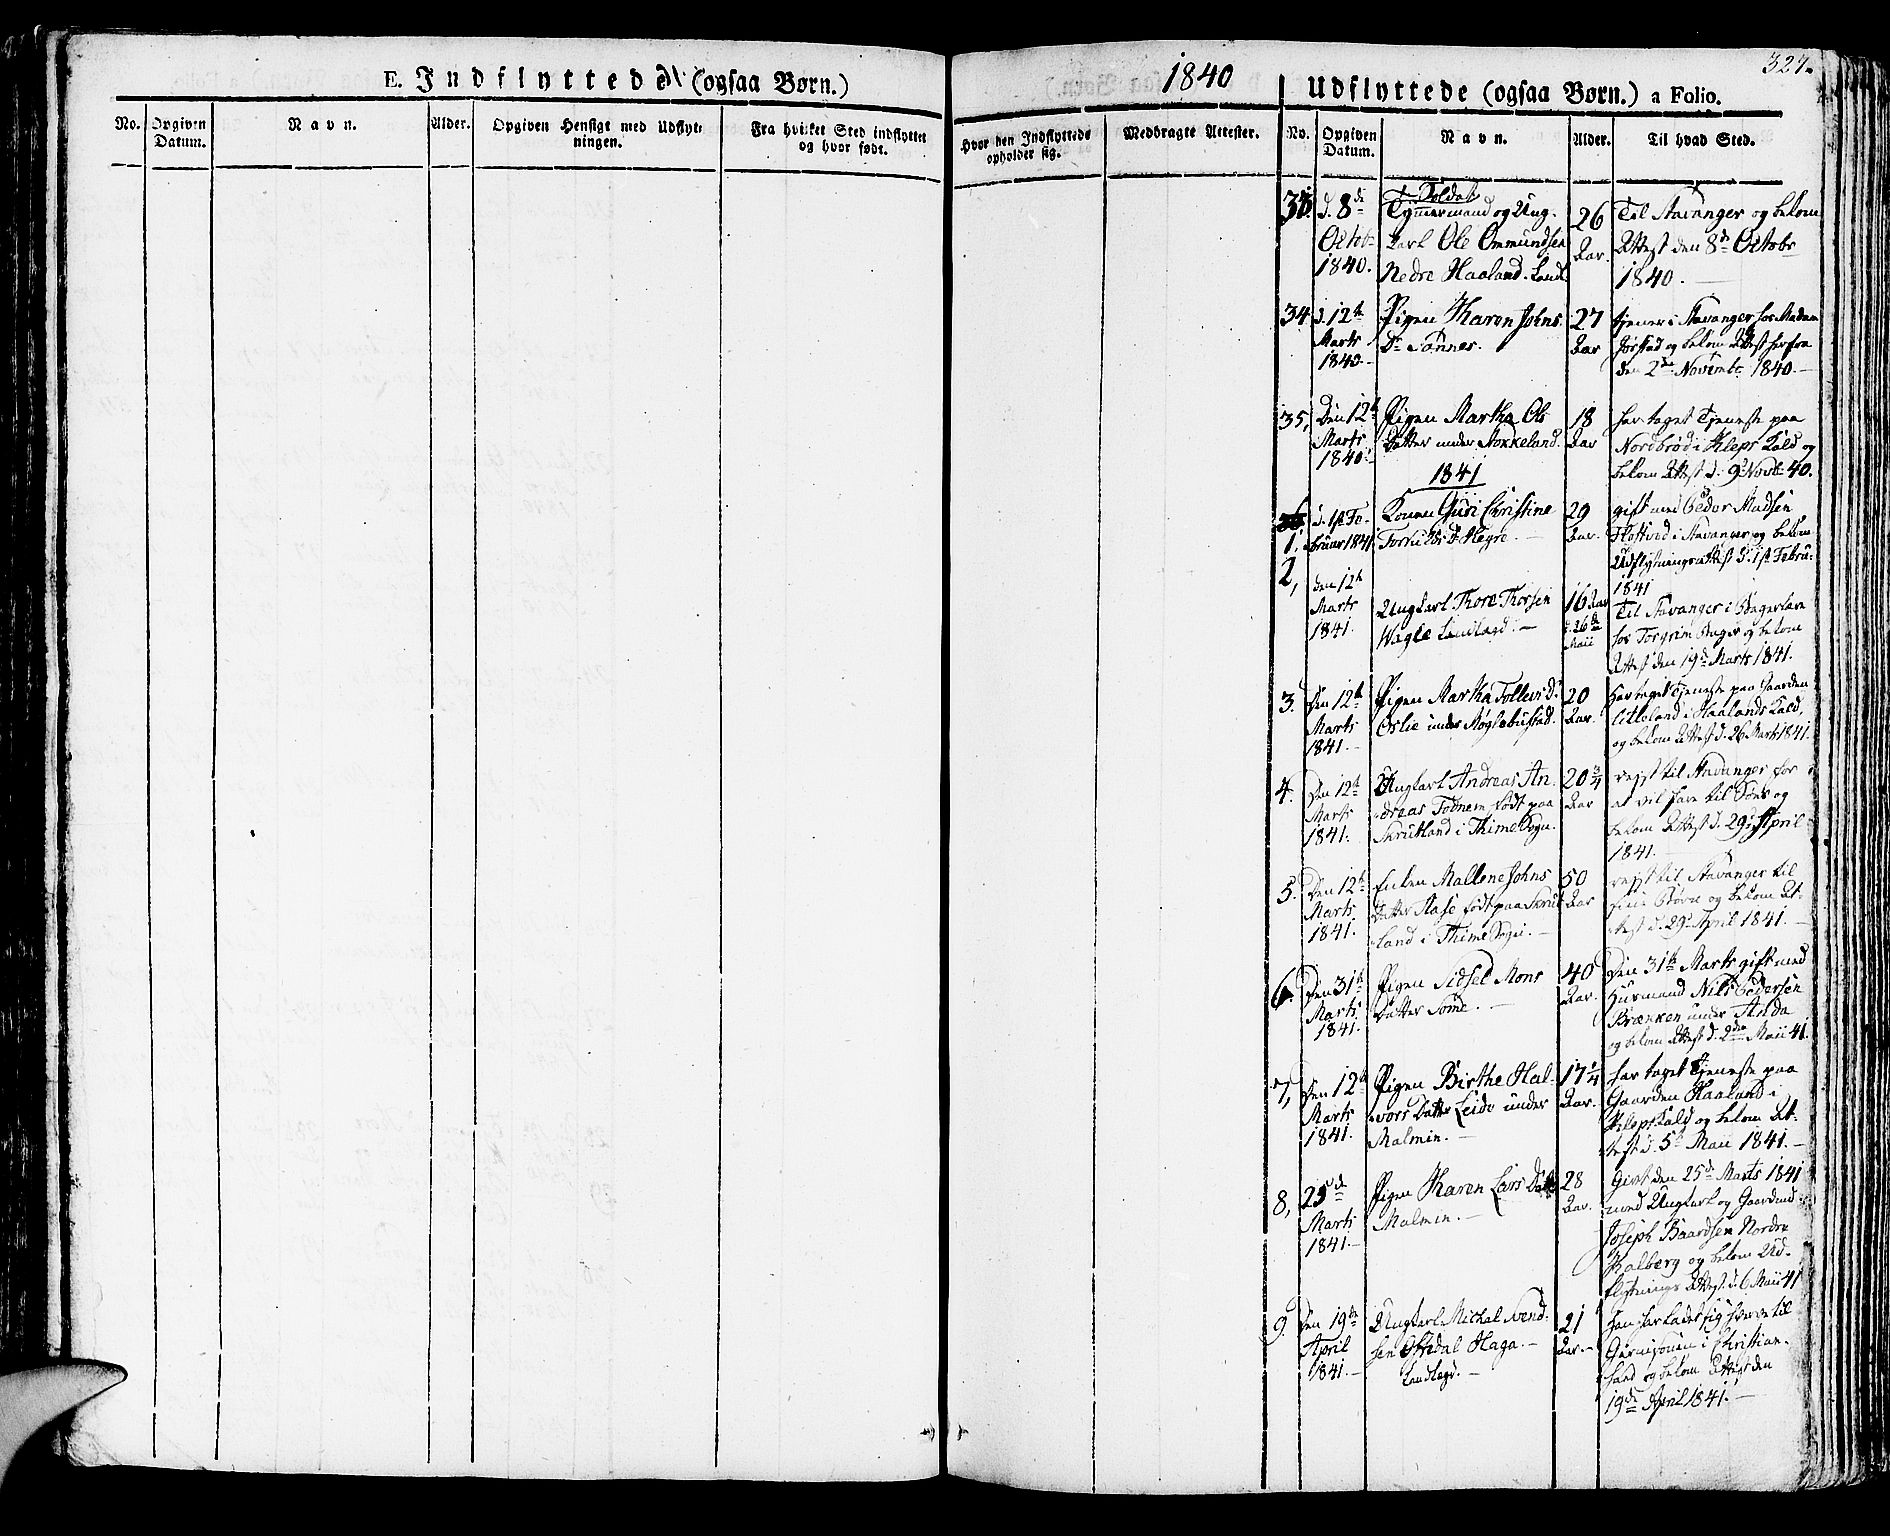 E. Indflyttede (ogsaa Børn.)
No.
Opgiven Datum.
Navn.
Alder.
Opgiven Hensigt med Udflytningen.
Fra hvilket Sted indflyttet og hvor født.
1840
327.
Hvor den Indflyttede opholder sig.
Medbragte Attester.
Udflyttede (ogsaa Børn.) a Folio.
No.
Opgiven Datum.
Navn.
Alder.
Til hvad Sted.
33.
d. 8de
Octob
1840.
Soldat
Tymmermand og Ung-
karl Ole Ommundsen
Nedre Haaland. Landl.
26
Aar.
Til Stavanger og bekom
Attest den 8de Octobr
1840.
34
d. 12te
Marts
1840
Pigen Karen Johns
Dr Sønner.
27
Aar
tjener i Stavanger hos Madam
Jørstad og bekom Attest herfra
den 2den Novembr 1840.
35,
Den 12te
Marts
1840.
Pigen Martha Ols
Datter under Stokkeland.
18
Aar
har taget Tjeneste paa
Nordbrød i Kleps Kald og
bekom Attest d. 9 Novbr 40.
1841
1.
d. 1ste Fe-
bruar 1841
Konen Guri Christine
Torkilds D. Hegre.
29
Aar.
gift med Peder Madsen
i Stavanger og bekom
Udflytningsattest d. 1ste Febru-
1841
2,
den 12te
Marts
1841.
Ungkarl Thore Thorsen
Wagle Landlagd.
16 Aar
d. 26de
Maii
Til Stavanger i Bagerlære
hos Torgrim Bager og bekom
Attest den 19de Marts 1841.
3.
Den 12te
Marts
1841.
Pigen Martha Tollevs D.
Oslie under Skjglebustad.
20
Aar.
Har taget Tjeneste paa Gaarden
i Haalands Kald,
og bekom Attest d. 26 Marts 1841.
4.
Den 12te
Marts
1841.
Ungkarl Andreas An-
dreas Todnem født paa
Skrutland i Thime Sogn.
20 3/4
Aar
rejst til Stavanger for
at vil fare til Søes og
bekom Attest d. 29 April
1841.
5.
Den 12te
Marts
1841.
Enken Mallene Johns
Datter Stase født paa Skrut
land i Thime Sogn.
50
Aar
rejst til Stavanger til
sine Børn og bekom At-
test d. 29 April 1841.
6.
Den 31te
Marts
1841.
Pigen Sidsel Mons
Datter Some.
40
Aar.
Den 31te Marts gift med
Huusmand Nils Pedersen
Brækken under Anda
og bekom Attest d. 2den Maii 41.
7,
Den 12te
Marts
1841.
Pigen Birthe Hal-
vors Datter Leide under
Malmin.
17 1/4
Aar.
har taget Tjeneste paa
Gaarden Haaland i
Kleps Kald og bekom At-
test d. 5te Maii 1841.
8,
25de
Marts
1841.
Pigen Karen Lars Datter
Malmin.
28
Aar.
Givt den 25de Marts 1841
med Ungkarl og Gaardmd
Joseph Baardsen Nordre
Kalberg og bekom Ud-
flytnings Attest d. 6 Maii 41
9.
Den 19de
April
1841.
Ungkarl Michal Svend-
sen Osedal Haga.
Landlagd.
21
Aar.
Han har ladet sig hverve til
Garnisonen i Christian-
sand og bekom Attest den
19de April 1841.